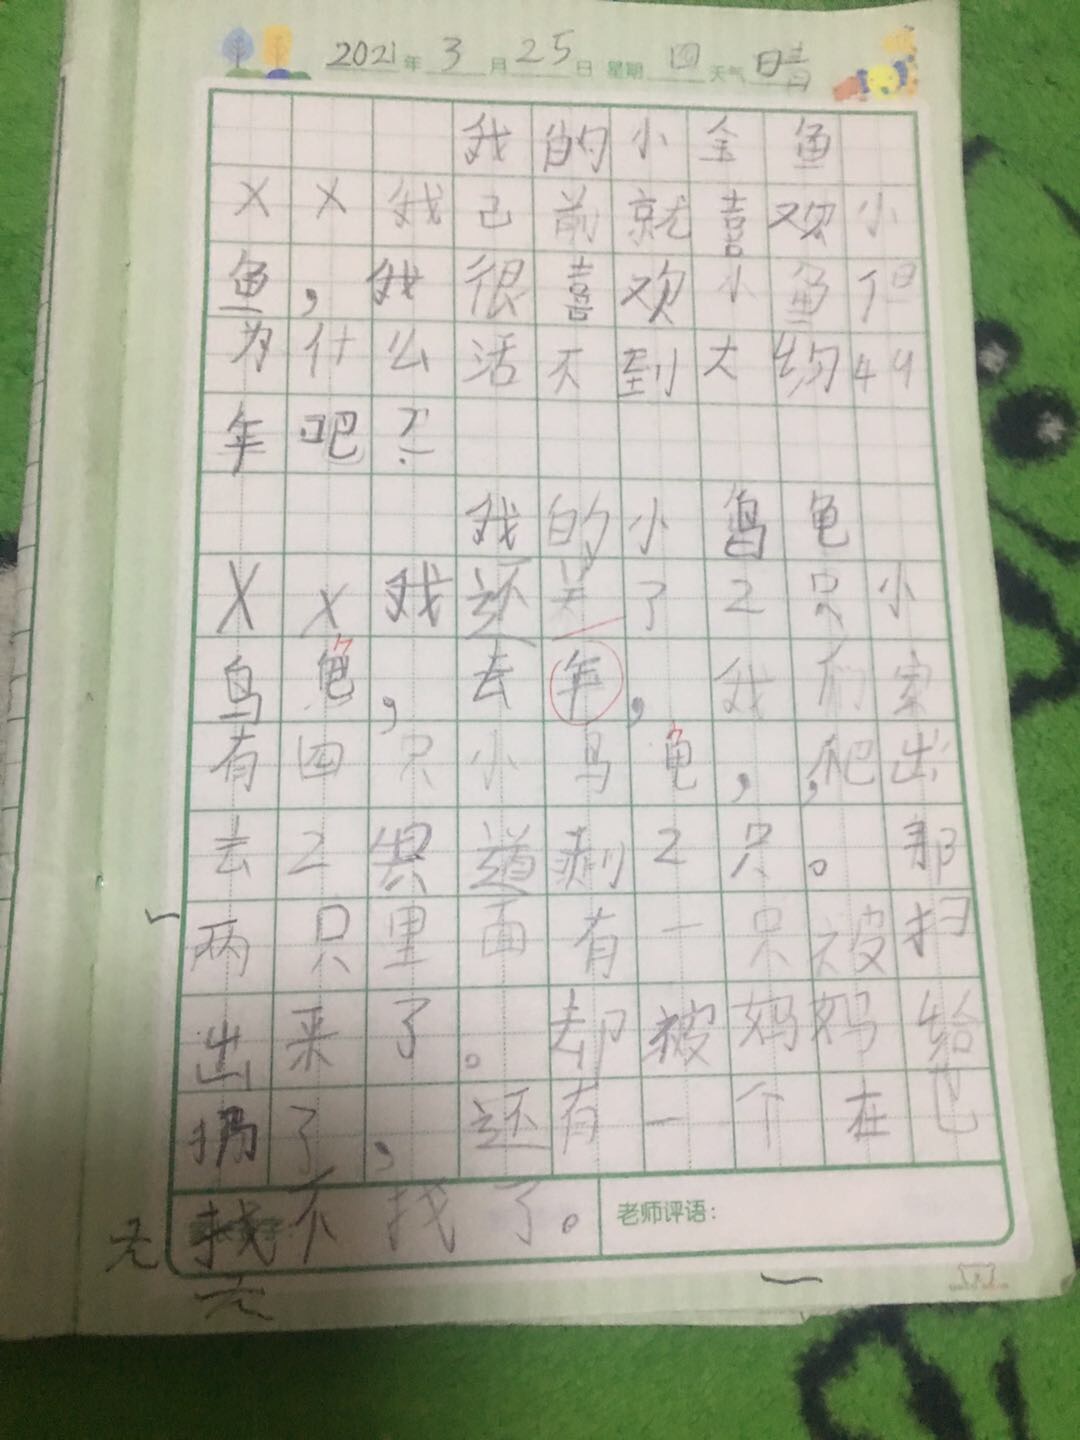 2021年3月25日 星期四 天气晴
我的小金鱼
XX我己前就喜欢小
鱼,我很喜欢小鱼但
为什么活不到大约49
年吧?
我的小鸟龟
XX我还关了2只小
鸟龟,去年,我们家
有四只小鸟龟,,爬出
去2只道剩2只。那
两只里面有一只被扫
出来了。却被妈妈给
扔了,还有一个在也
找不找了。
老师评语: